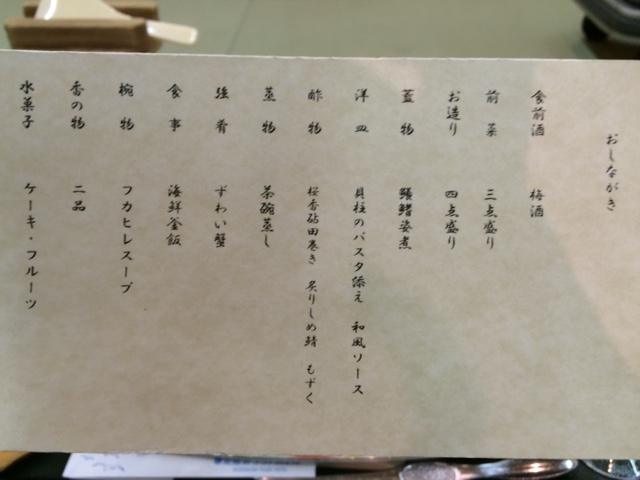 おしながき
食前酒 梅酒
前菜 三点盛り
お造り 四点盛り
蓋物 鱶鰭姿煮
洋皿 貝柱のパスタ添え 和風ソース
酢物 桜香砧田巻き 炙りしめ鯖 もずく
蒸物 茶碗蒸し
強肴 ずわい蟹
食事 海鮮釜飯
椀物 フカヒレスープ
香の物 二品
水菓子 ケーキ・フルーツ